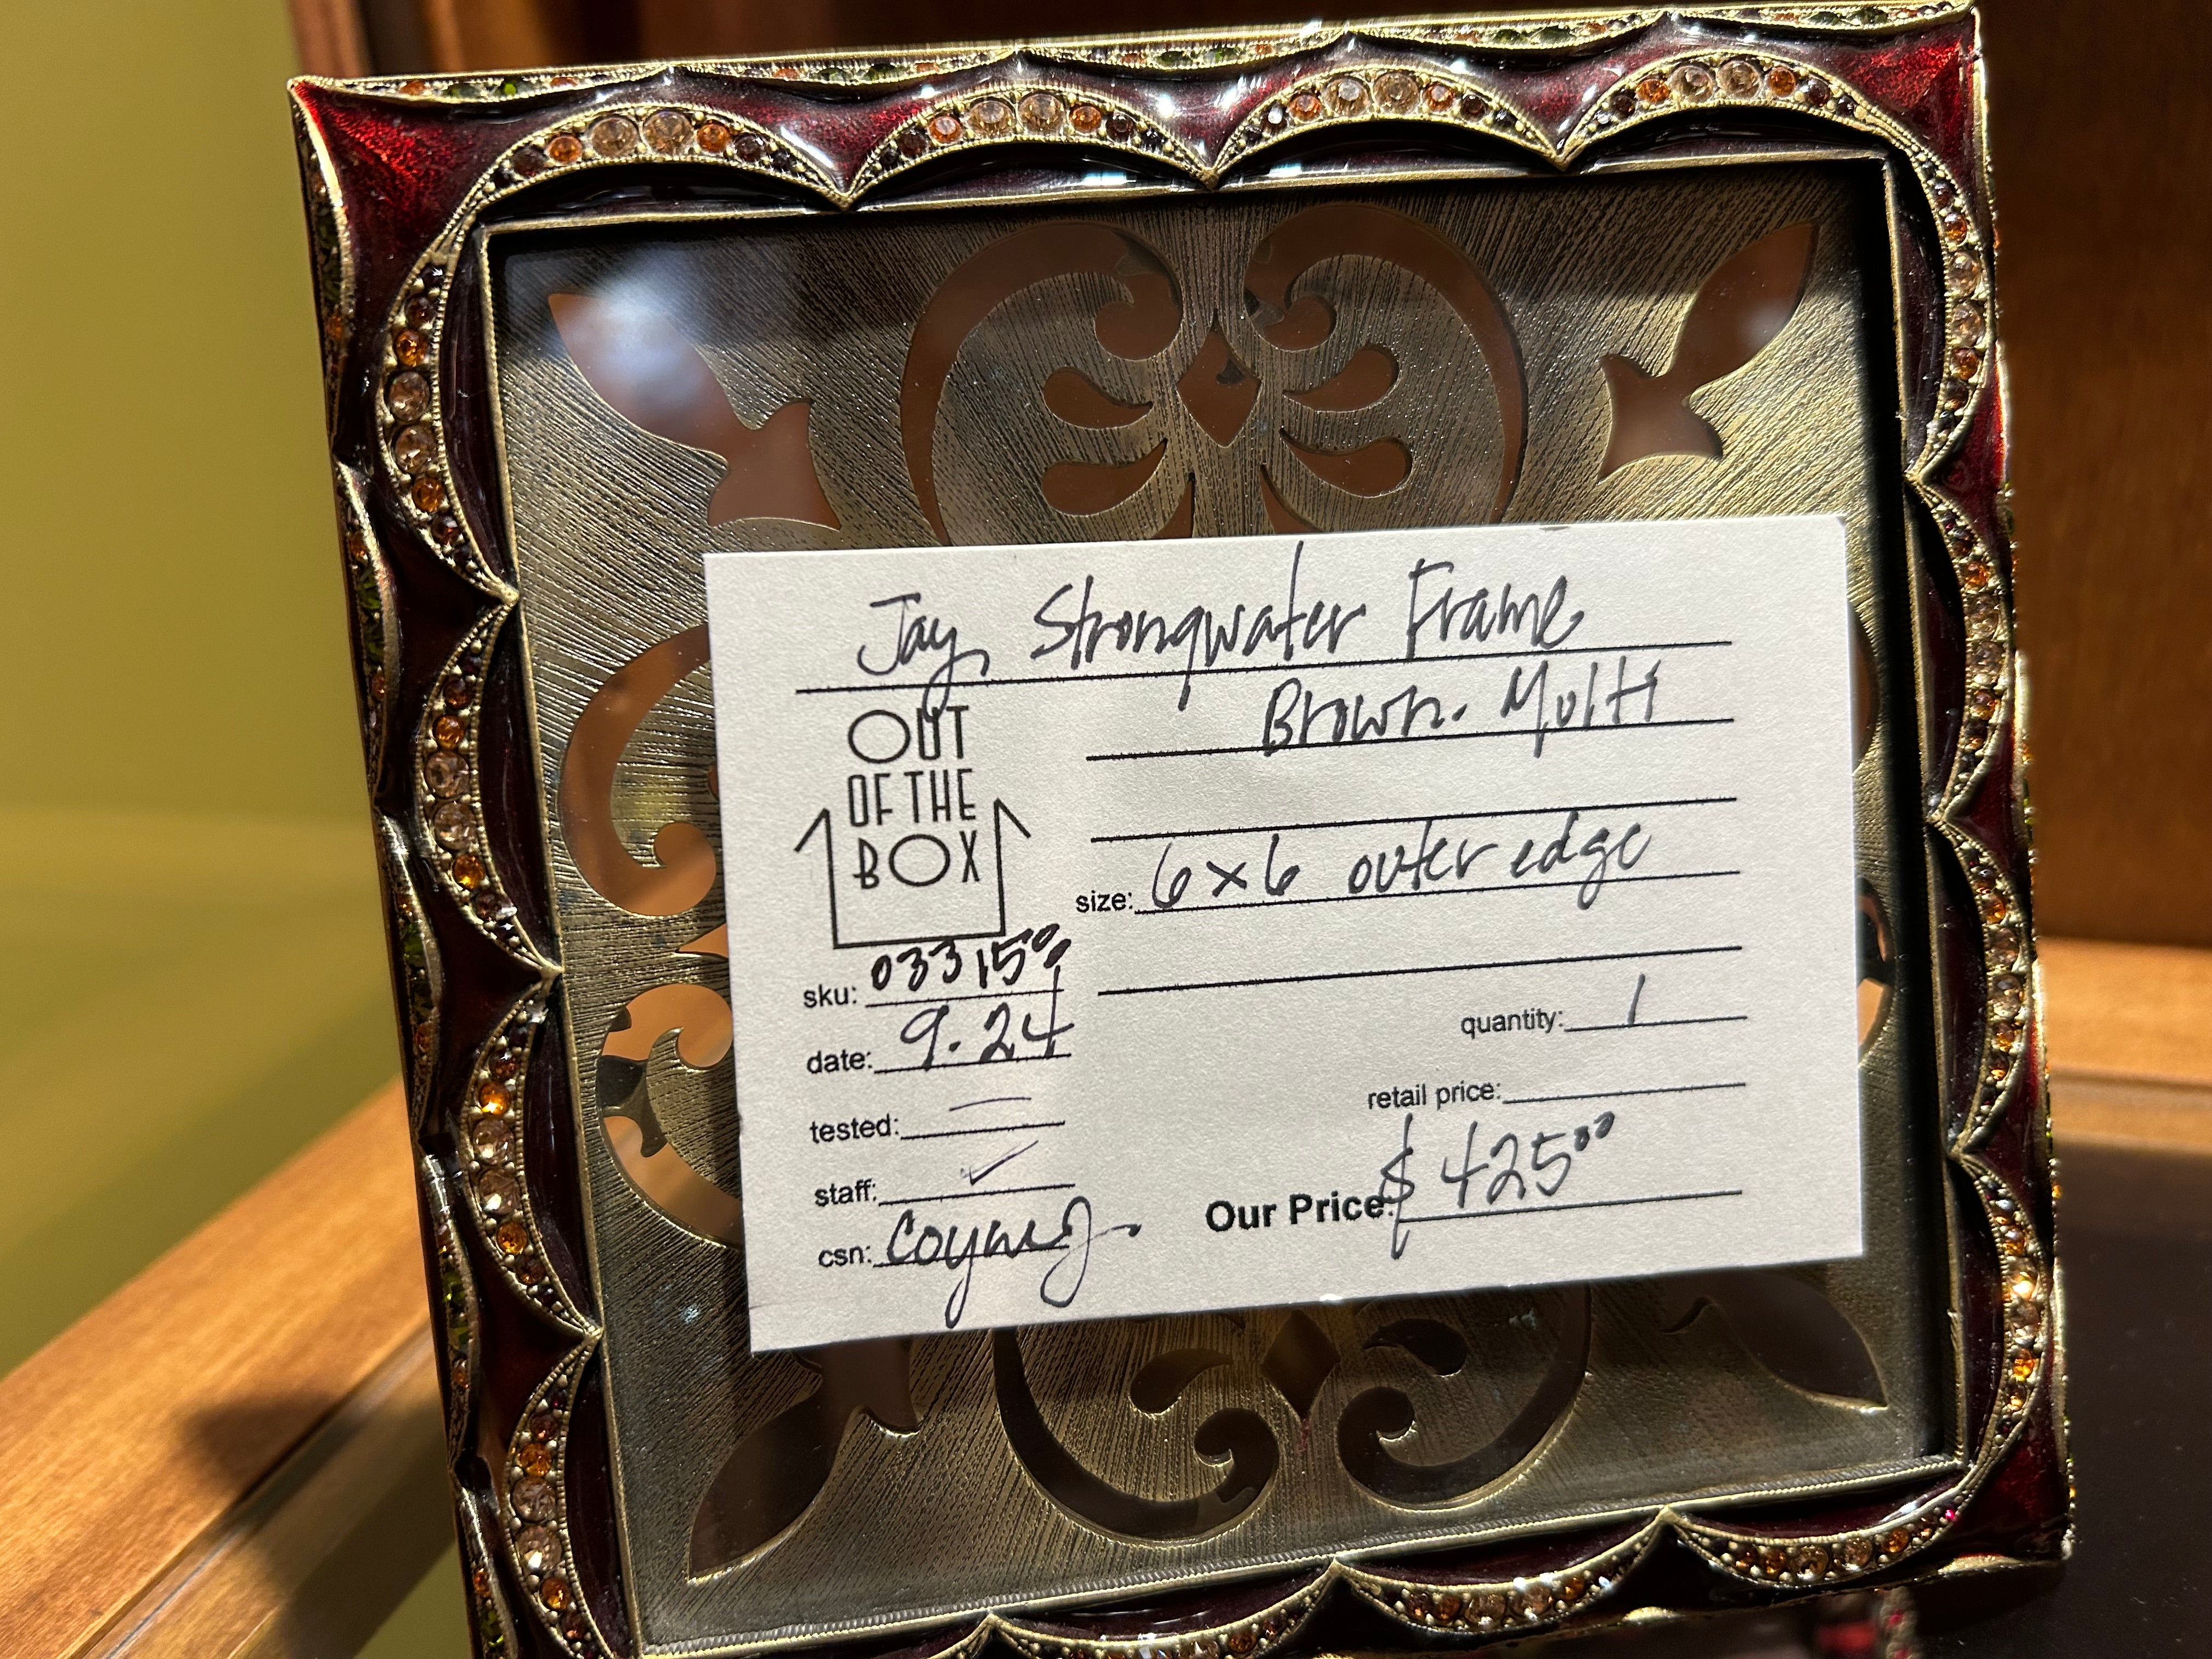 Jay Strongwater Frame
Brown. Multi
OUT
OF THE
BOX
size: 6x6 outer edge
sku: 03315⁰⁰
date: 9.24
quantity: 1
tested: —
retail price:
staff: ✓
Our Price: $425⁰⁰
csn: